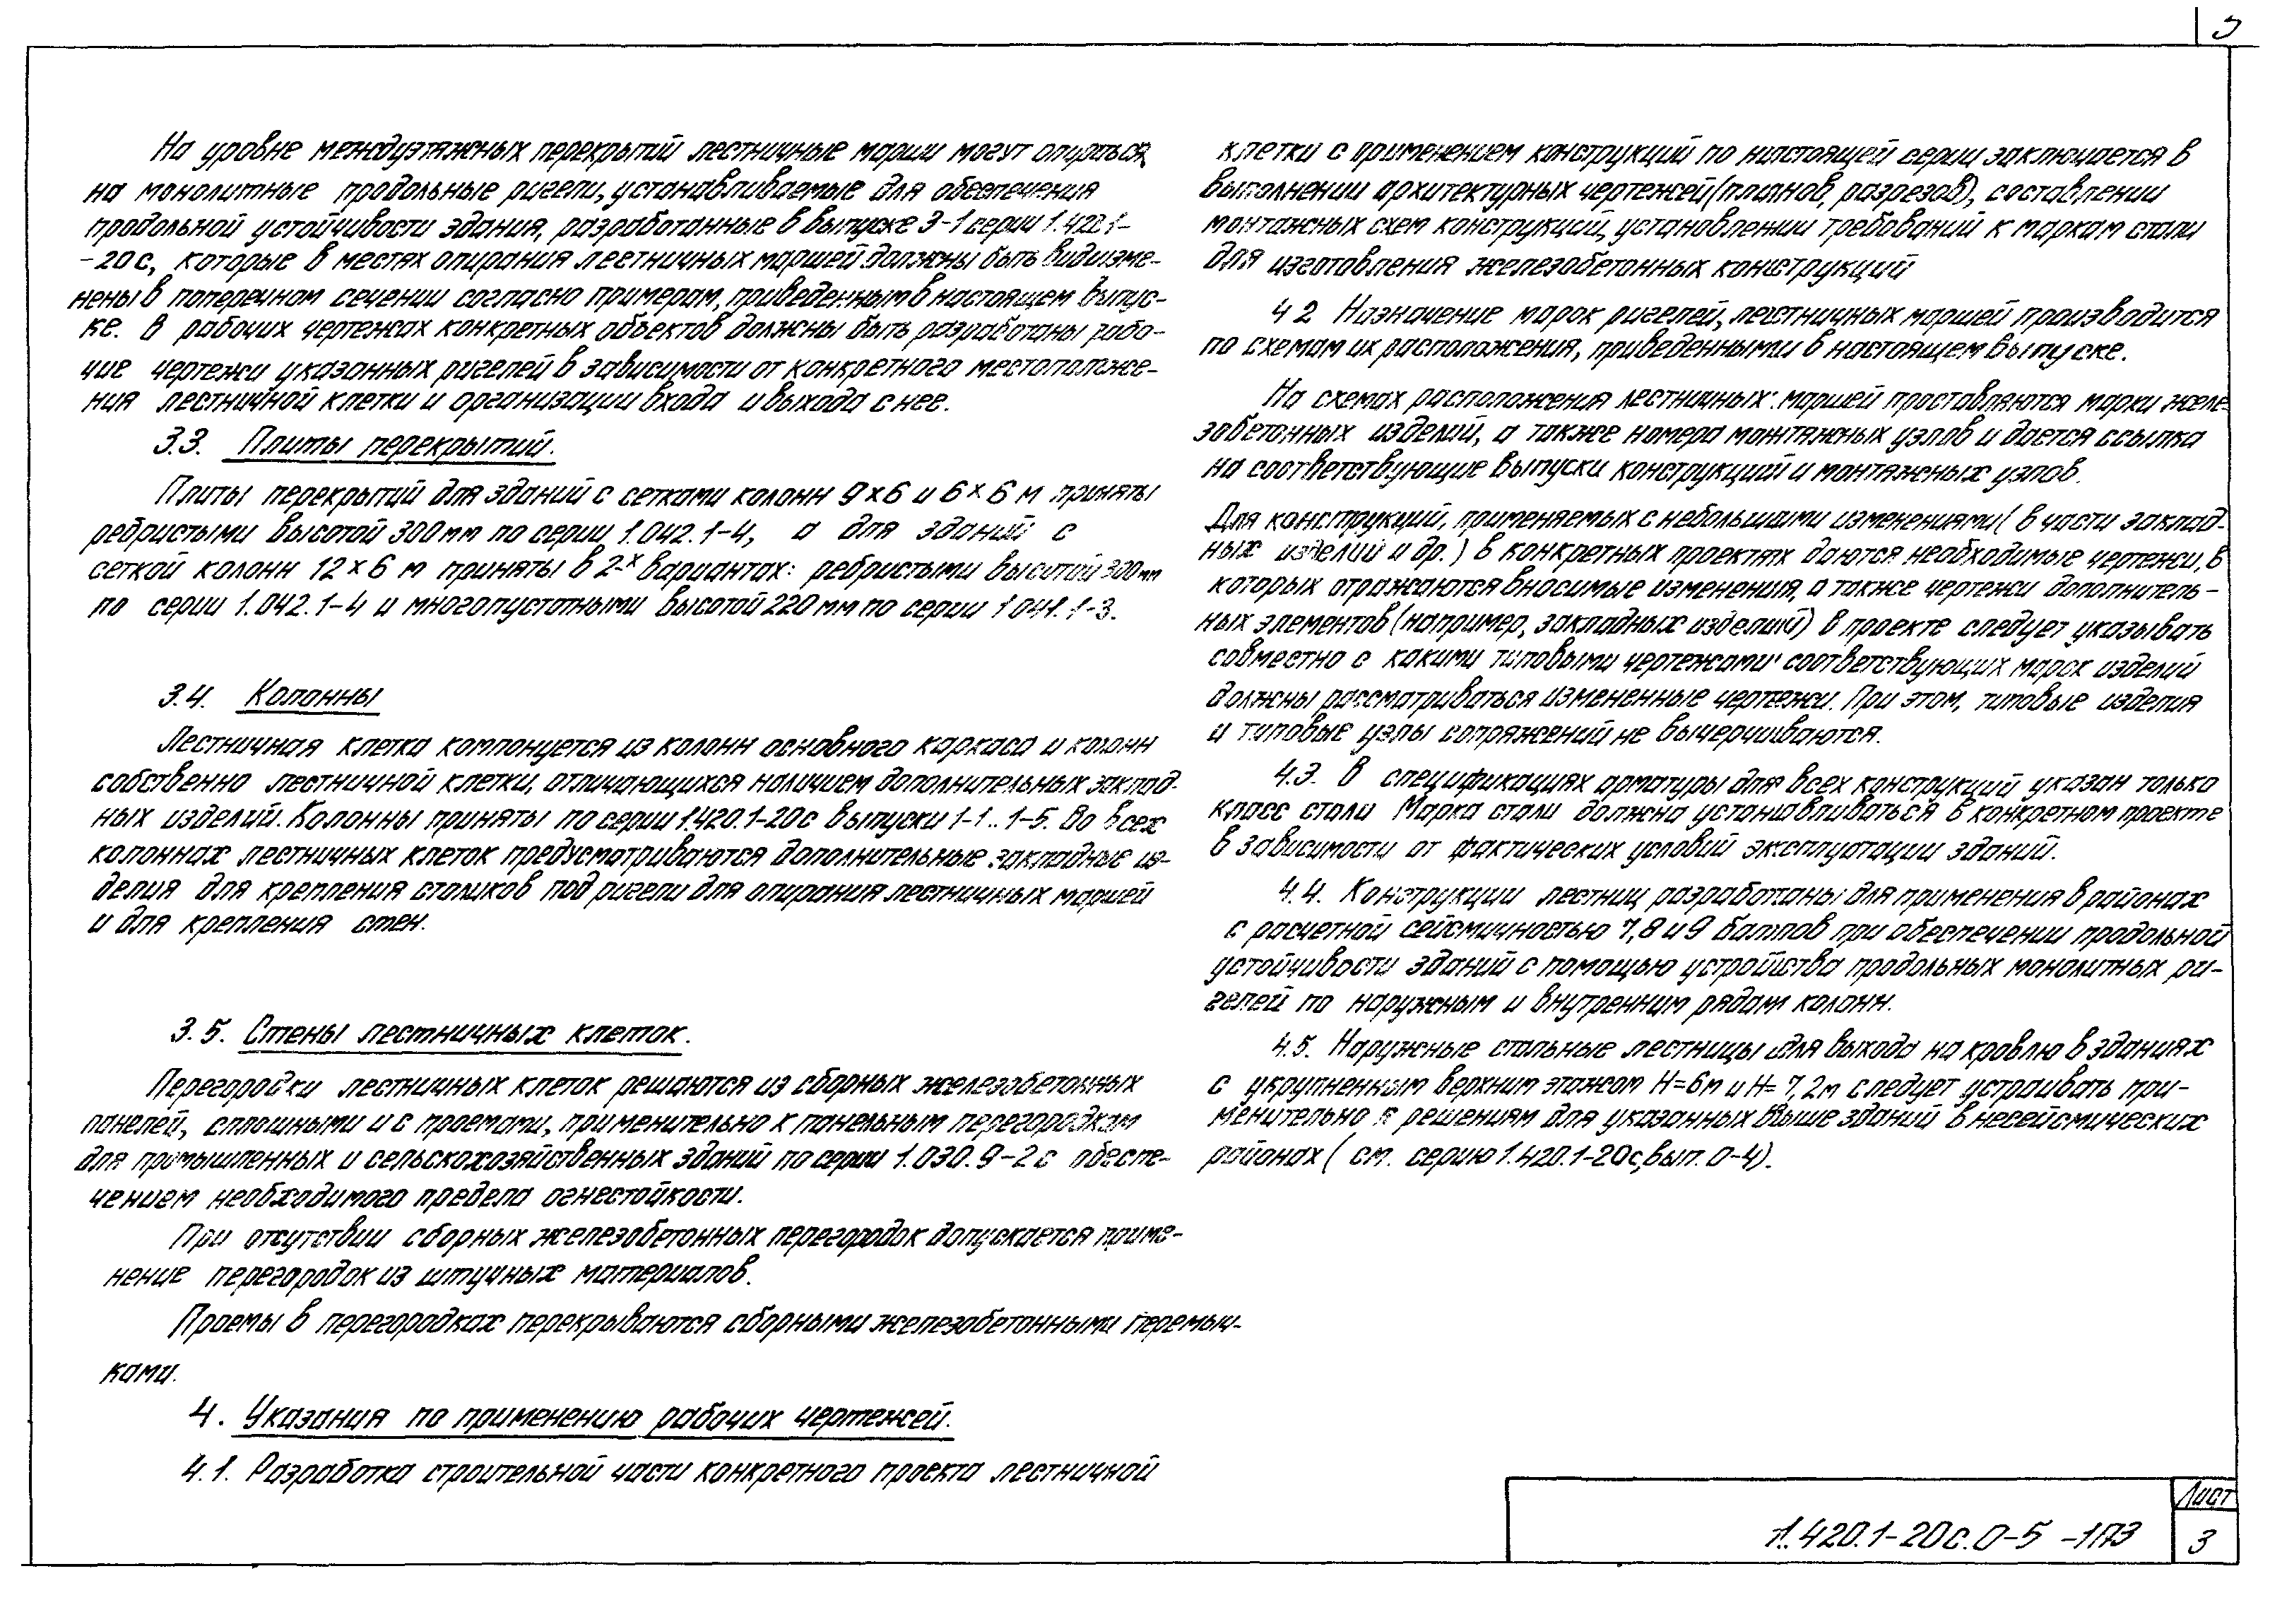 На уровне междуэтажных перекрытий лестничные марши могут опираться
на монолитные продольные ригели, устанавливаемые для обеспечения
продольной устойчивости здания, разработанные в выпуске 3-1 серии 1.420.1-
-20с, которые в местах опирания лестничных маршей должны быть видоизме-
нены в поперечном сечении согласно примерам, приведенным в настоящем выпус-
ке. В рабочих чертежах конкретных объектов должны быть разработаны рабо-
чие чертежи указанных ригелей в зависимости от конкретного местоположе-
ния лестничной клетки и организации входа и выхода с нее.
3.3. Плиты перекрытий.
Плиты перекрытий для зданий с сетками колонн 9×6 и 6×6 м приняты
ребристыми высотой 300 мм по серии 1.042.1-4, а для зданий с
сеткой колонн 12×6 м приняты в 2-х вариантах: ребристыми высотой 300 мм
по серии 1.042.1-4 и многопустотными высотой 220 мм по серии 1 041.1-3.
3.4. Колонны
Лестничная клетка компонуется из колонн основного каркаса и колонн
собственно лестничной клетки, отличающихся наличием дополнительных заклад-
ных изделий. Колонны приняты по серии 1.420.1-20с выпуски 1-1.. 1-5. Во всех
колоннах лестничных клеток предусматриваются дополнительные закладные из-
делия для крепления столиков под ригели для опирания лестничных маршей
и для крепления стен.
3.5. Стены лестничных клеток.
Перегородки лестничных клеток решаются из сборных железобетонных
панелей, сплошными и с проемами, применительно к панельным перегородкам
для промышленных и сельскохозяйственных зданий по серии 1.030.9-2 с обеспе-
чением необходимого предела огнестойкости.
При отсутствии сборных железобетонных перегородок допускается приме-
нение перегородок из штучных материалов.
Проемы в перегородках перекрываются сборными железобетонными перемыч-
ками.
4. Указания по применению рабочих чертежей.
4.1. Разработка строительной части конкретного проекта лестничной
клетки с применением конструкций по настоящей серии заключается в
выполнении архитектурных чертежей (планов, разрезов), составлении
монтажных схем конструкций, установлении требований к маркам стали
для изготовления железобетонных конструкций
4 2 Назначение марок ригелей, лестничных маршей производится
по схемам их расположения, приведенными в настоящем выпуске.
На схемах расположения лестничных маршей проставляются марки желе-
зобетонных изделий, а также номера монтажных узлов и дается ссылка
на соответствующие выпуски конструкций и монтажных узлов.
Для конструкций, применяемых с небольшими изменениями (в части заклад-
ных изделий и др.) в конкретных проектах даются необходимые чертежи, в
которых отражаются вносимые изменения, а также чертежи дополнитель-
ных элементов (например, закладных изделий) в проекте следует указывать
совместно с какими типовыми чертежами соответствующих марок изделий
должны рассматриваться измененные чертежи. При этом, типовые изделия
и типовые узлы сопряжений не вычерчиваются.
4.3. В спецификациях арматуры для всех конструкций указан только
класс стали Марка стали должна устанавливаться в конкретном проекте
в зависимости от фактических условий эксплуатации зданий.
4.4. Конструкции лестниц разработаны для применения в районах
с расчетной сейсмичностью 7,8 и 9 баллов при обеспечении продольной
устойчивости зданий с помощью устройства продольных монолитных ри-
гелей по наружным и внутренним рядам колонн.
4.5. Наружные стальные лестницы для выхода на кровлю в зданиях
с укрупненным верхним этажом Н=6м и Н=7,2м следует устраивать при-
менительно к решениям для указанных выше зданий в несейсмических
районах ( см. серию 1.420.1-20с, вып. 0-4).
1.420.1-20с.0-5 -1ПЗ
Лист
3